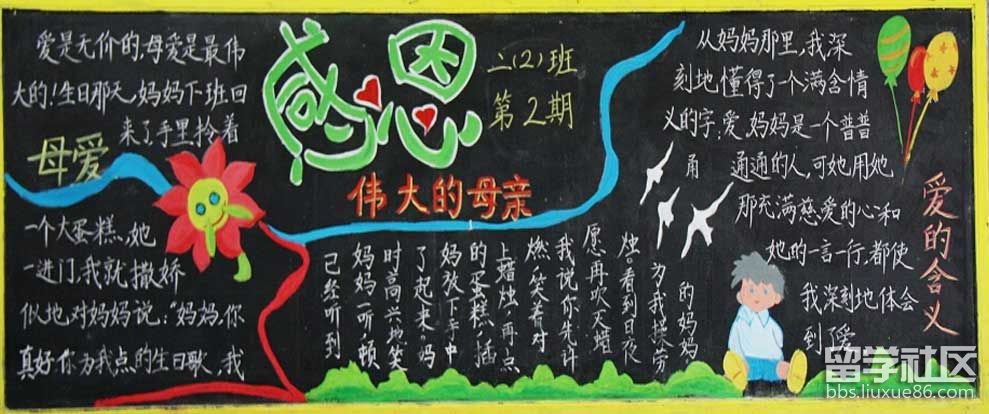 感恩
二(2)班
第2期
伟大的母亲
母爱
爱是无价的,母爱是最伟
大的!生日那天,妈妈下班回
来了手里拎着
一个大蛋糕,她
一进门,我就撒娇
似地对妈妈说:“妈妈,你
真好你为我点的生日歌,我
己经听到
妈妈一听,顿
时高兴地笑
了起来。妈
妈放下手中
的蛋糕,插
上蜡烛,再点
燃,笑着对
我说你先许
愿再吹灭蜡
烛。看到日夜
为我操劳
的妈妈
爱的含义
从妈妈那里,我深
刻地懂得了一个满含情
义的字:爱,妈妈是一个普普
甬 通通的人,可她用她
那充满慈爱的心和
她的一言一行,都使
我深刻地体会
到了爱
留学社区
bbs.liuxue86.com